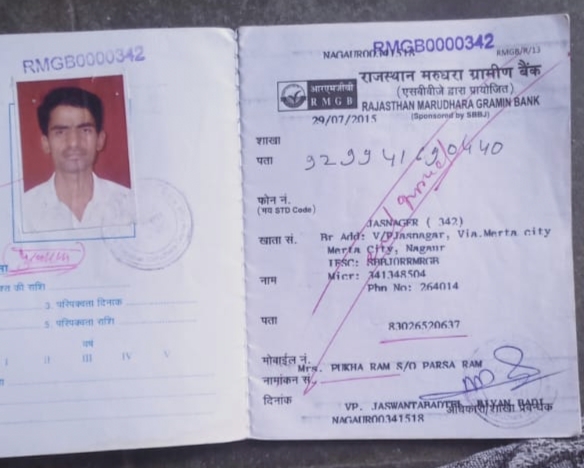 RMGB0000342
3. परिपक्वता दिनांक
5. परिपक्वता राशि
वर्ष
I II III IV V
RMGB0000342
NAGAUR00341518
RMGB/R/13
आरएमजीबी
RMGB
राजस्थान मरुधरा ग्रामीण बैंक
(एसबीबीजे द्वारा प्रायोजित)
RAJASTHAN MARUDHARA GRAMIN BANK
(Sponsored by SBBJ)
29/07/2015
शाखा
पता
फोन नं.
(मय STD Code)
JASNAGER ( 342)
खाता सं. Br Add: V/PJasnagar, Via.Merta city
Merta City, Nagaur
Micr: 341348504
नाम
Phn No: 264014
पता
83026520637
मोबाईल नं.
Mrs. PUKHA RAM S/O PARSA RAM
नामांकन सं.
दिनांक
VP. JASWANTABAD
अधिकारी/शाखा प्रबन्धक
NAGAUR00341518